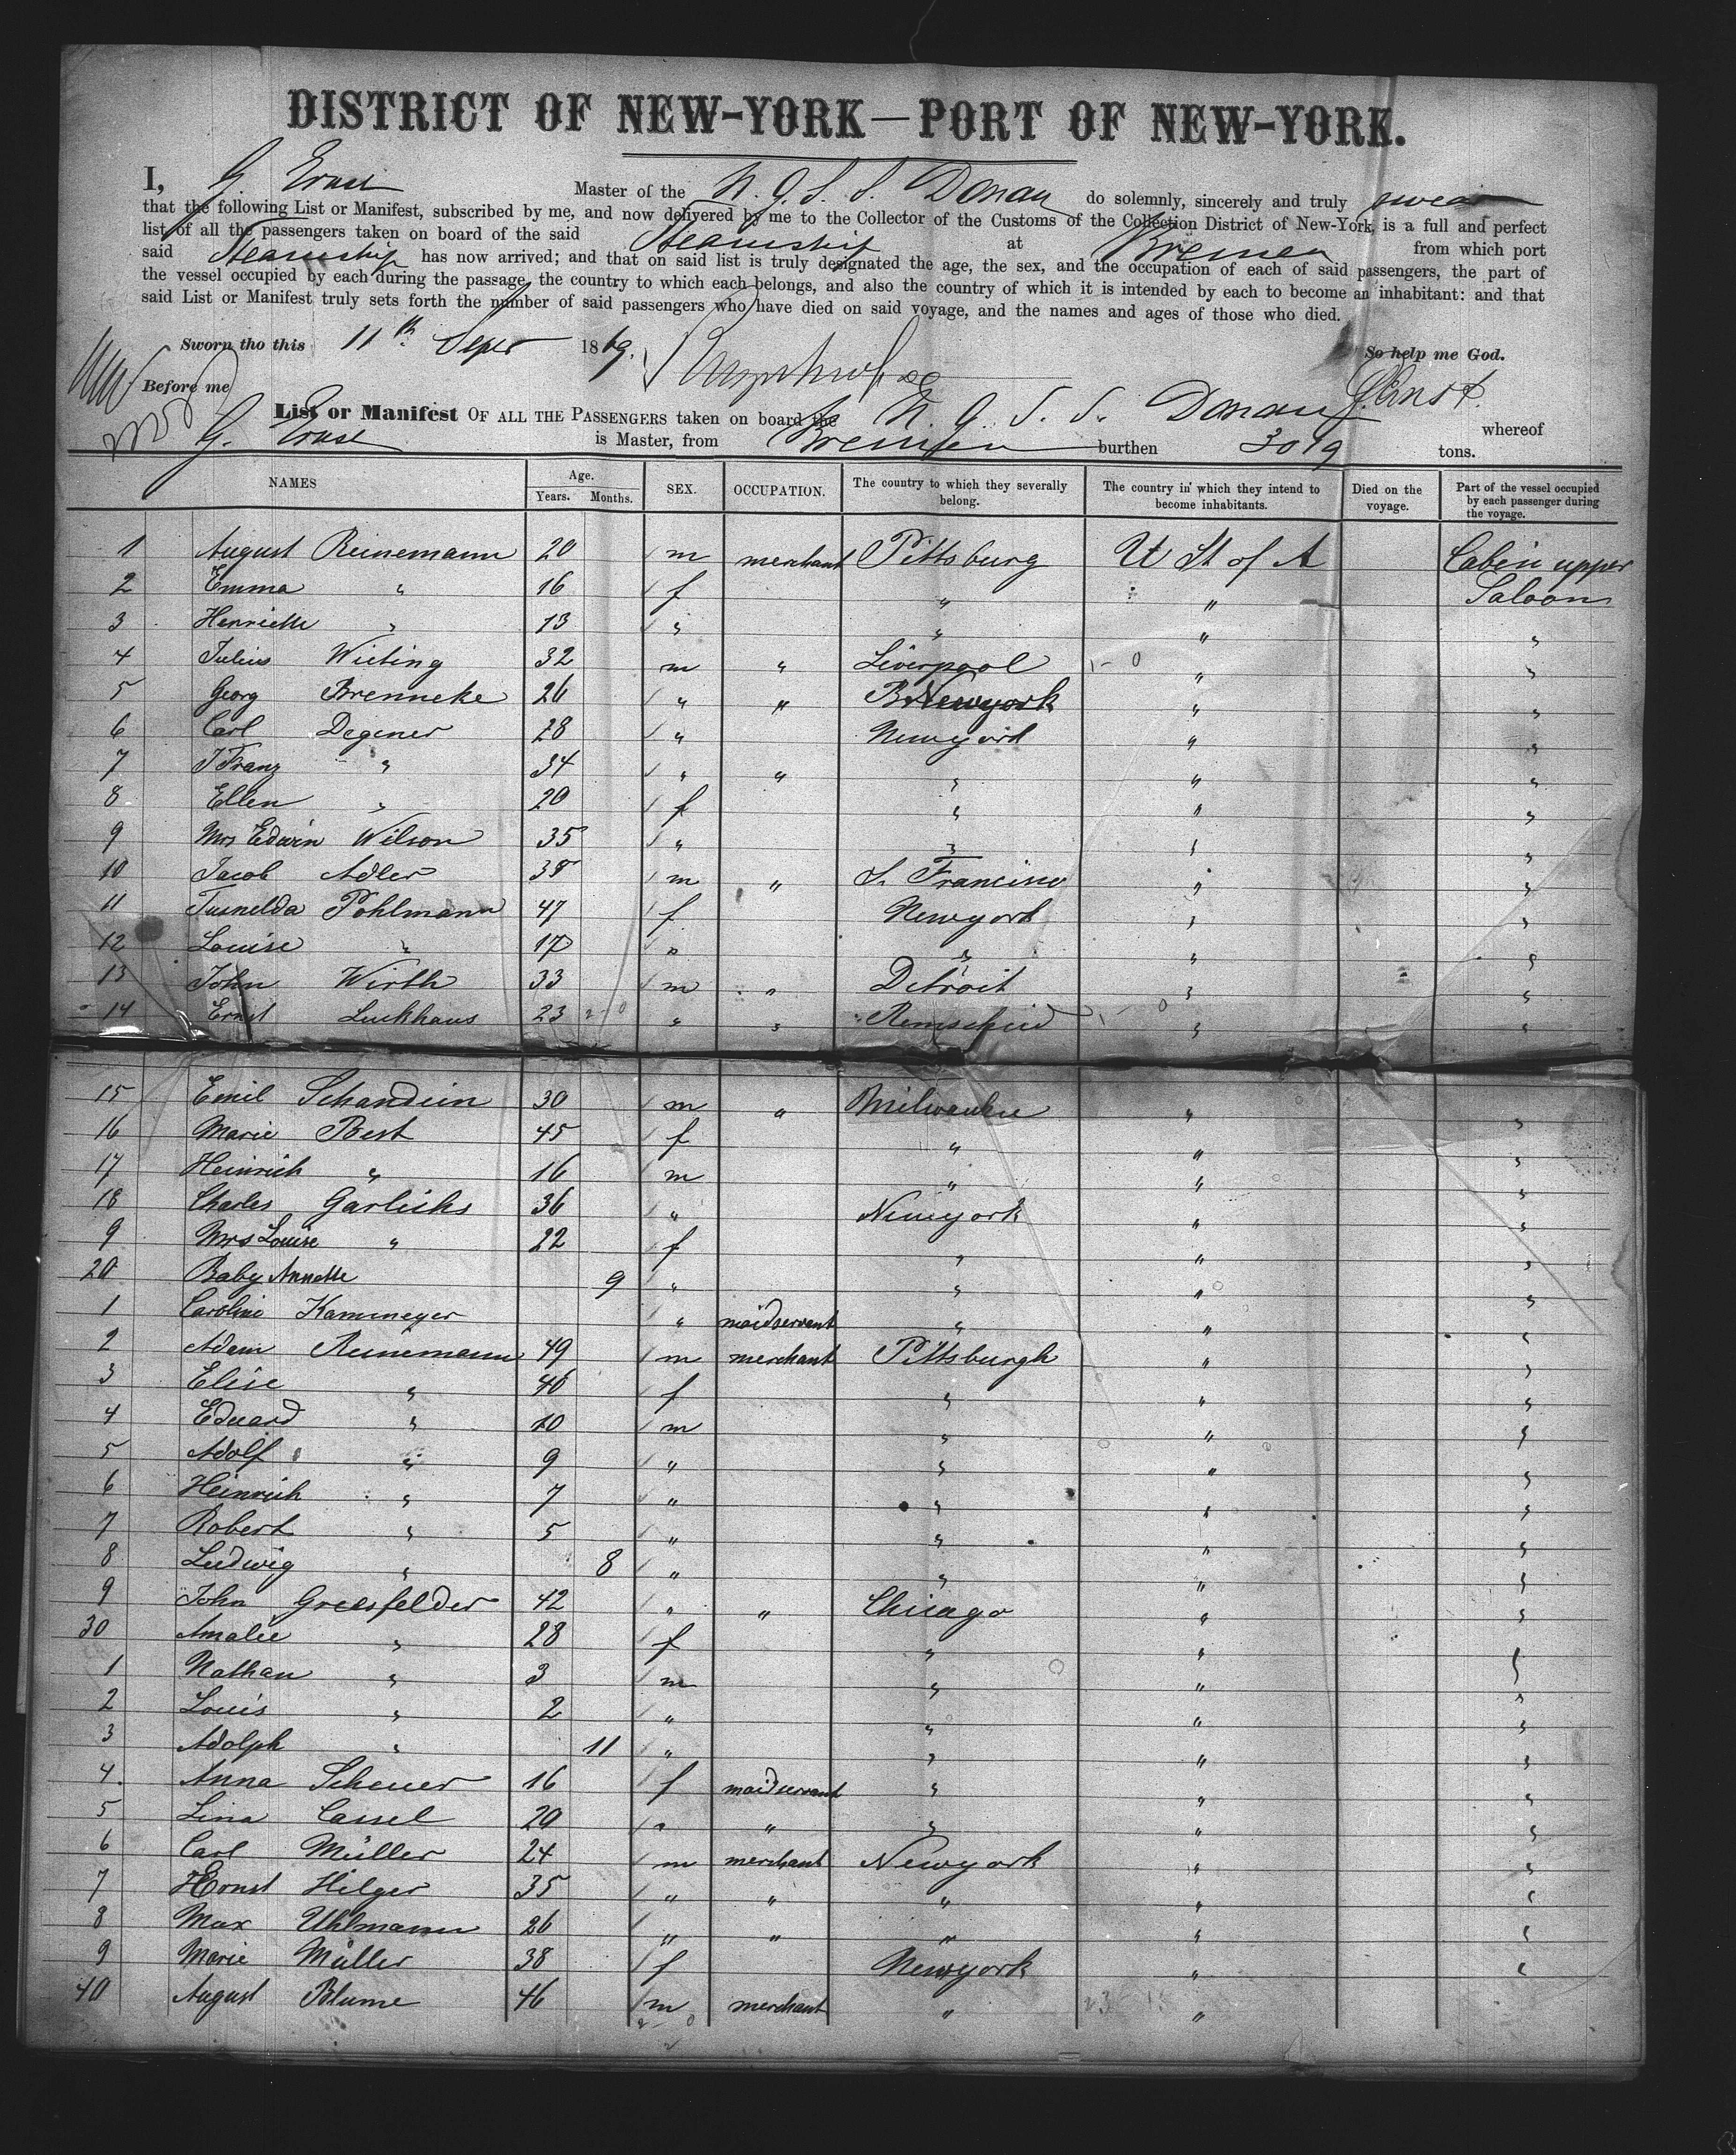 DISTRICT OF NEW-YORK—PORT OF NEW-YORK.
I, G. Ernst Master of the N. G. S. S. Donau do solemnly, sincerely and truly swear
that the following List or Manifest, subscribed by me, and now delivered by me to the Collector of the Customs of the Collection District of New-York, is a full and perfect
list of all the passengers taken on board of the said Steamship at Bremen from which port
said Steamship has now arrived; and that on said list is truly designated the age, the sex, and the occupation of each of said passengers, the part of
the vessel occupied by each during the passage, the country to which each belongs, and also the country of which it is intended by each to become an inhabitant: and that
said List or Manifest truly sets forth the number of said passengers who have died on said voyage, and the names and ages of those who died.
Sworn tho this 11th Sepr 1869. So help me God.
Before me G. Ernst.
List or Manifest OF ALL THE PASSENGERS taken on board the N. G. S. S. Donau whereof
G. Ernst is Master, from Bremen burthen 3019 tons.
NAMES Age. Years. Months. SEX. OCCUPATION. The country to which they severally belong. The country in which they intend to become inhabitants. Died on the voyage. Part of the vessel occupied by each passenger during the voyage.
1 August Reinemann 20 m merchant Pittsburg U St of A Cabin upper
2 Emma " 16 f " " Saloon
3 Henriette " 13 " " " "
4 Julius Wieting 32 m " Liverpool " "
5 Georg Brenneke 26 " " Newyork " "
6 Carl Degener 28 " Newyork " "
7 J Franz " 34 " " " " "
8 Ellen " 20 f " " "
9 Mrs Edwin Wilson 35 " " " "
10 Jacob Adler 38 m " S. Francisco " "
11 Tusnelda Pohlmann 47 f Newyork " "
12 Louise " 17 " " " "
13 John Wirth 33 m " Detroit " "
14 Ernst Luckhaus 23 " " Remscheid " "
15 Emil Schandein 30 m " Milwaukee " "
16 Marie Best 45 f " " "
17 Heinrich " 16 m " " "
18 Charles Garlichs 36 " Newyork " "
9 Mrs Louise " 22 f " " "
20 Baby Annette 9 " " " "
1 Caroline Kammeyer " maidservant " " "
2 Adam Reinemann 49 m merchant Pittsburgh " "
3 Elise " 40 f " " "
4 Eduard " 10 m " " "
5 Adolf " 9 " " " "
6 Heinrich " 7 " " " "
7 Robert " 5 " " " "
8 Ludwig " 8 " " " "
9 John Greesfelder 42 " " Chicago " "
30 Amalie " 28 f " " "
1 Nathan " 3 m " " "
2 Louis " 2 " " " "
3 Adolph " 11 " " " "
4 Anna Scheuer 16 f maidservant " " "
5 Lina Cassel 20 " " " " "
6 Carl Müller 24 m merchant Newyork " "
7 Ernst Hilger 35 " " " " "
8 Max Uhlmann 26 " " " " "
9 Marie Müller 38 f Newyork " "
40 August Blume 46 m merchant " "